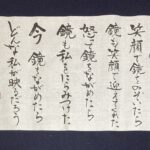 笑顔で鏡をのぞいたら
鏡も笑顔で迎えてくれた
怒って鏡をながめたら
鏡も私をにらみつけた
今 鏡をながめたら
どんな私が映るだろう